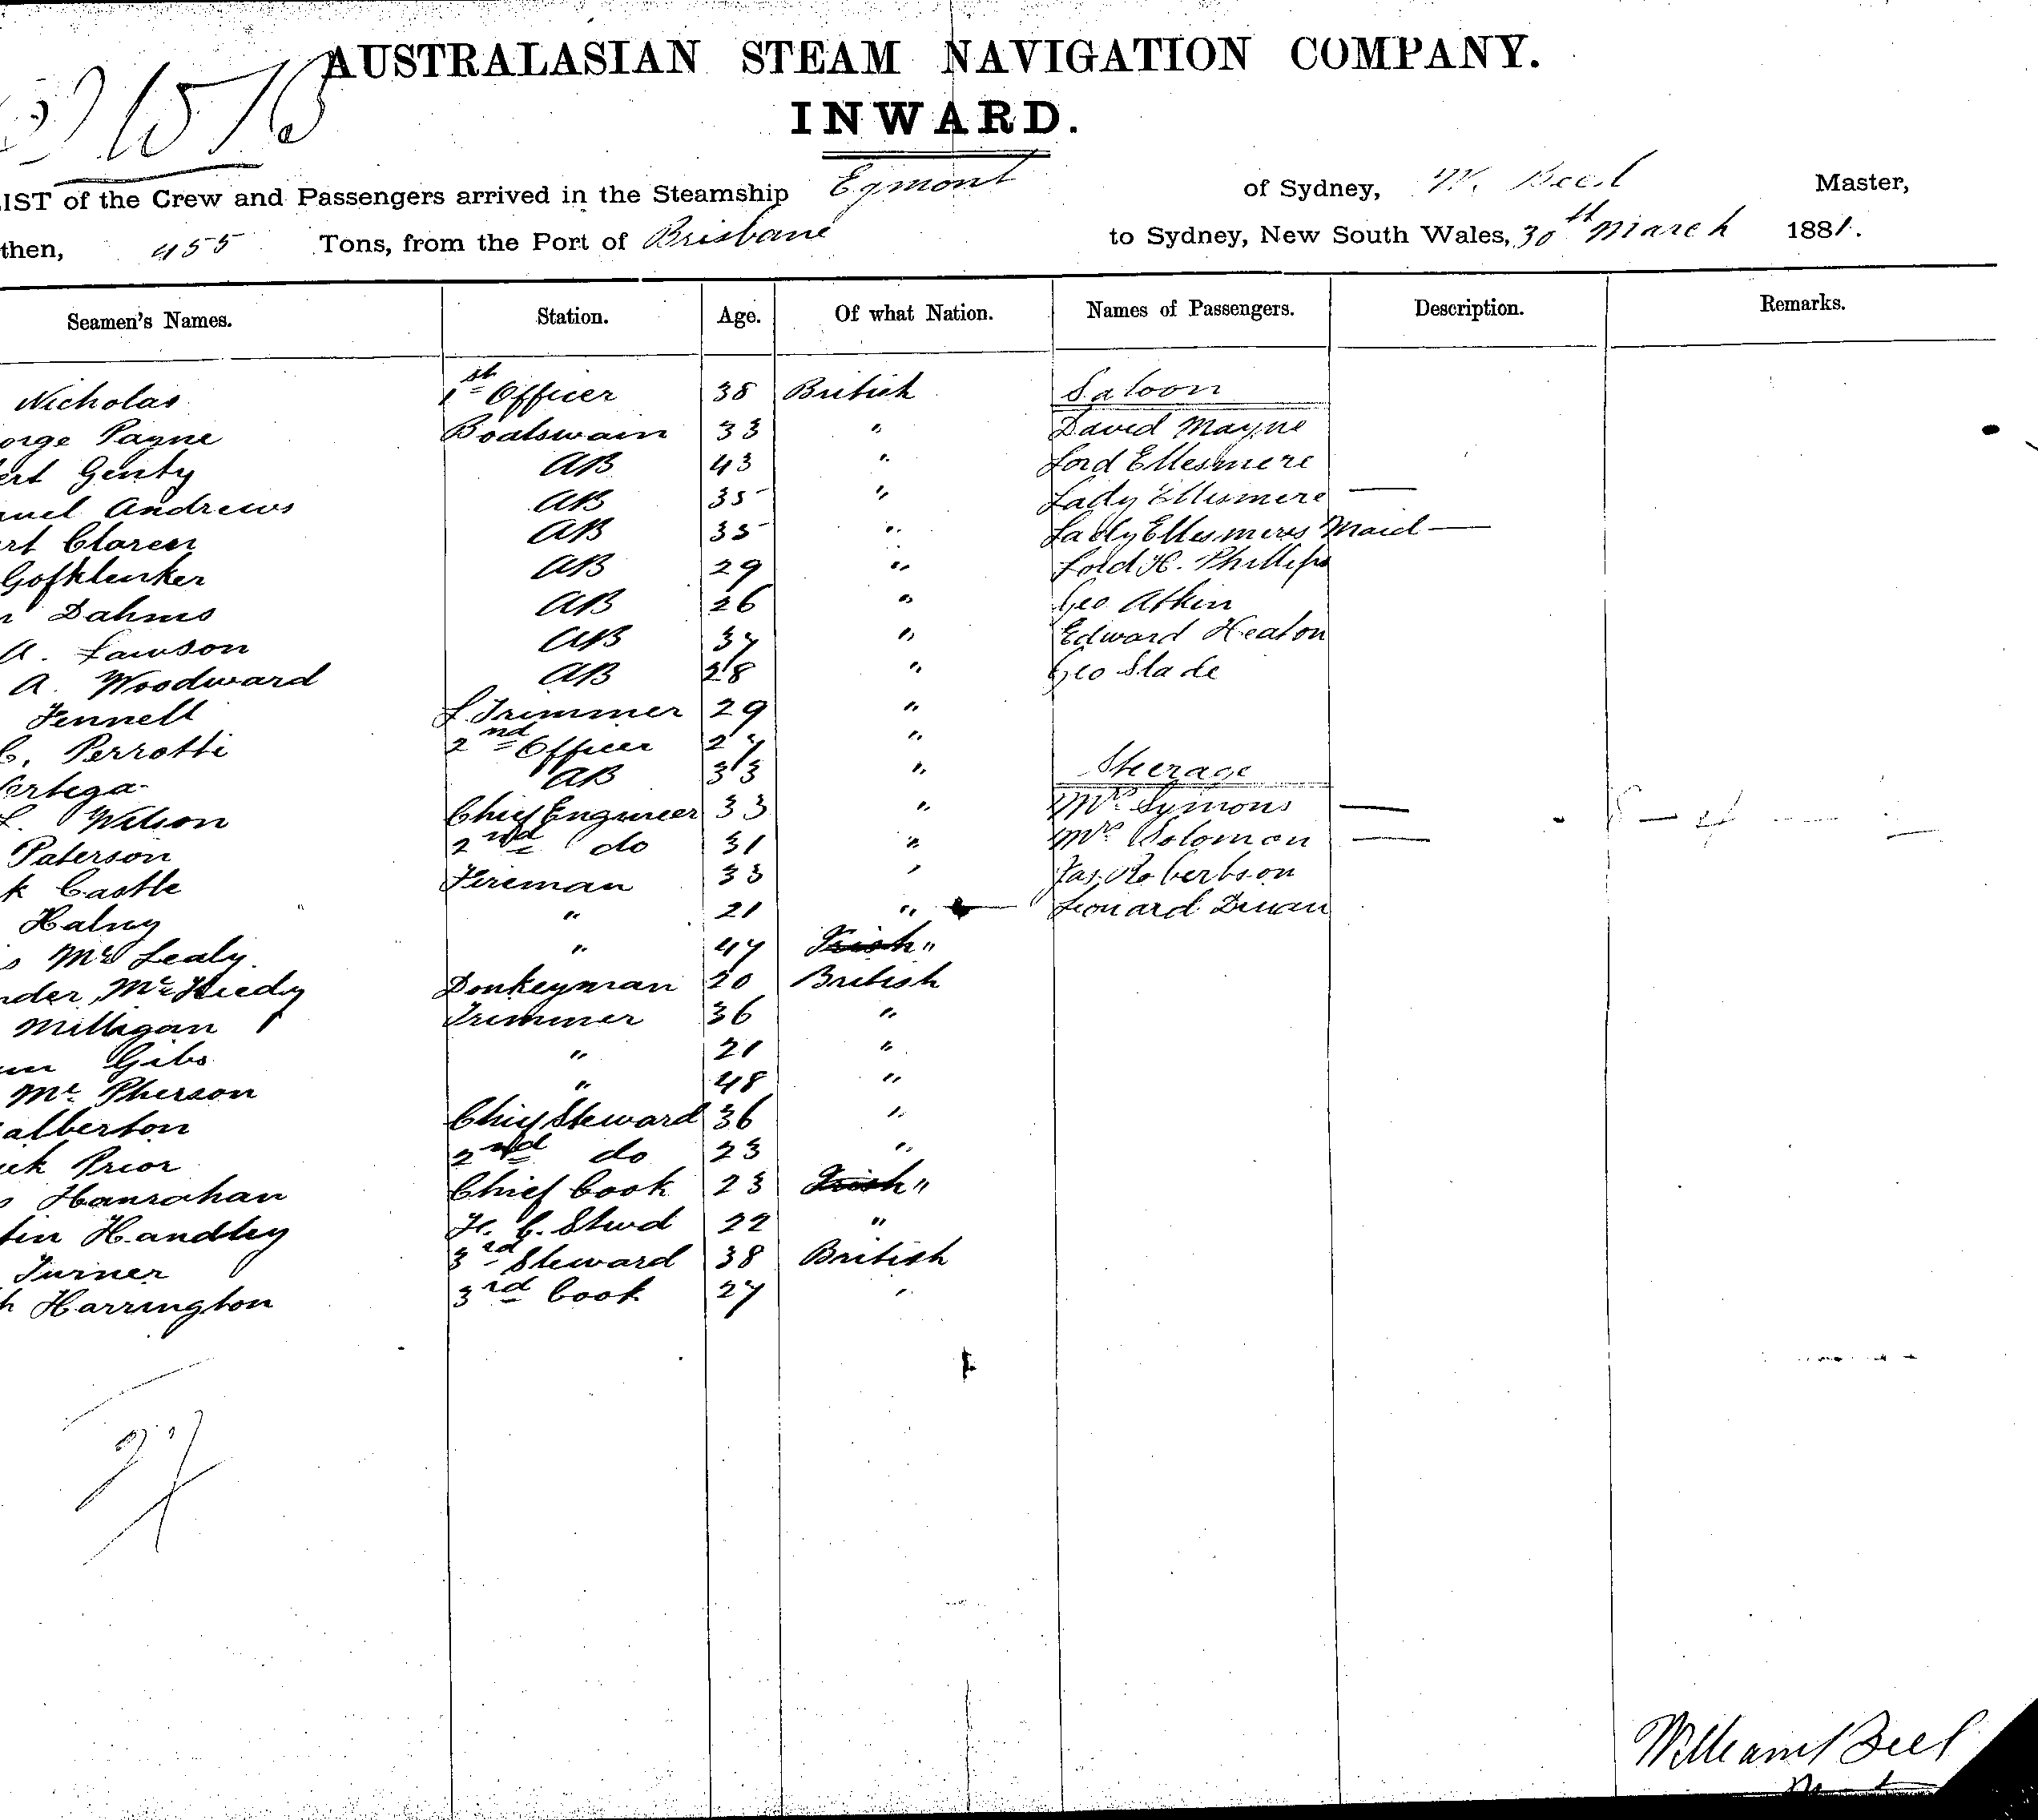 AUSTRALASIAN STEAM NAVIGATION COMPANY.
INWARD.
LIST of the Crew and Passengers arrived in the Steamship Egmont of Sydney, W. Beel Master,
then, 455 Tons, from the Port of Brisbane to Sydney, New South Wales, 30th March 1881.
Seamen's Names. Station. Age. Of what Nation. Names of Passengers. Description. Remarks.
Nicholas 1st Officer 38 British Saloon
orge Payne Boatswain 33 " David Mayne
ert Genty AB 43 " Lord Ellesmere
uel Andrews AB 35 " Lady Ellesmere —
rt Claren AB 35 " Lady Ellesmeres Maid —
AB 29 " Lord H. Phillips
n Dahms AB 26 " Geo Atkin
A. Lawson AB 37 " Edward Heaton
A. Woodward AB 28 " Geo Slade
Fennell Trimmer 29 "
C. Perrotti 2nd Officer "
Ortega AB 33 " Steerage
L. Wilson Chief Engineer 33 " Mrs Symons —
Paterson 2nd do 31 " Mrs Solomon —
k Castle Fireman 33 " Jas. Robertson
Halny " 21 " Leonard
s Mc Lealy " 47 Irish "
nder Mc Donkeyman 20 British
Milligan Trimmer 36 "
Gibs " 21 "
Mc Pherson " 48 "
alberton Chief Steward 36 "
ick Prior 2nd do 23 "
Hanrahan Chief Cook 23 Irish "
tin Handley F. C. Stwd 22 "
Turner 3rd Steward 38 British
h Harrington 3rd Cook 27 "
27
William Beel